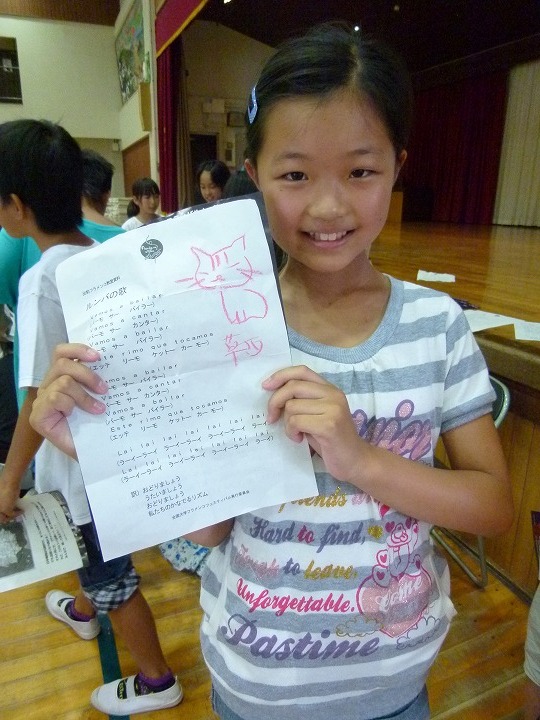 ルンバの歌
Vamos a bailar
(バーモ サー バイラー)
Vamos a cantar
(バーモ サー カンター)
Vamos a bailar
(バーモ サー バイラー)
Este rimo que tocamos
(エッテ リーモ ケットー カー モー)
Vamos a bailar
(バーモ サー バイラー)
Vamos a cantar
(バーモ サー カンター)
Vamos a bailar
(バーモ サー バイラー)
Este rimo que tocamos
(エッテ リーモ ケットー カー モー)
Lai lai lai lai lai lai lai
(ラーイーラーイ ラーイーラーイ ラーイーラーイ)
Lai lai lai lai lai lai lai
(ラーイーラーイ ラーイーラーイ ラーイーラーイ)
訳) おどりましょう
うたいましょう
おどりましょう
私たちのかなでるリズム
friends
Hard to find,
Tough to leave.
Unforgettable.
Pastime